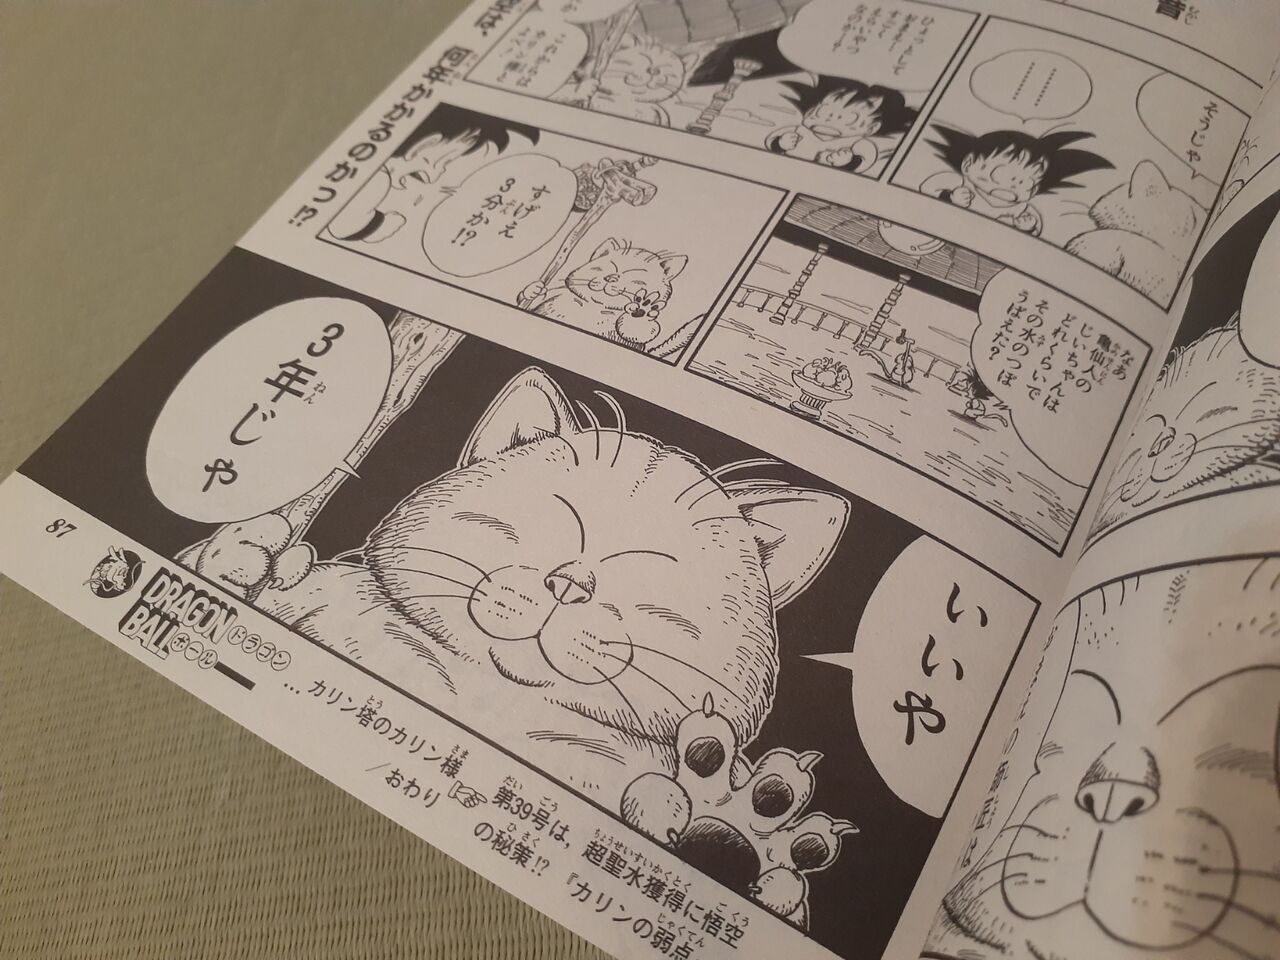 そうじゃ
…………
ひょっとして
おまえ
すごく
えらいやつ
なのか…
これからは
カリンさまと
よべ
なあ
亀仙人の
じいちゃんは
どれくらいで
その水のつぼ
うばえた?
すげえ
3分か!?
何年かかるのかっ!?
いいや
3年じゃ
87
DRAGON
BALL
ドラゴン
ボール
…カリン塔のカリン様
/おわり
☞第39号は,超聖水獲得に悟空
の秘策!?『カリンの弱点